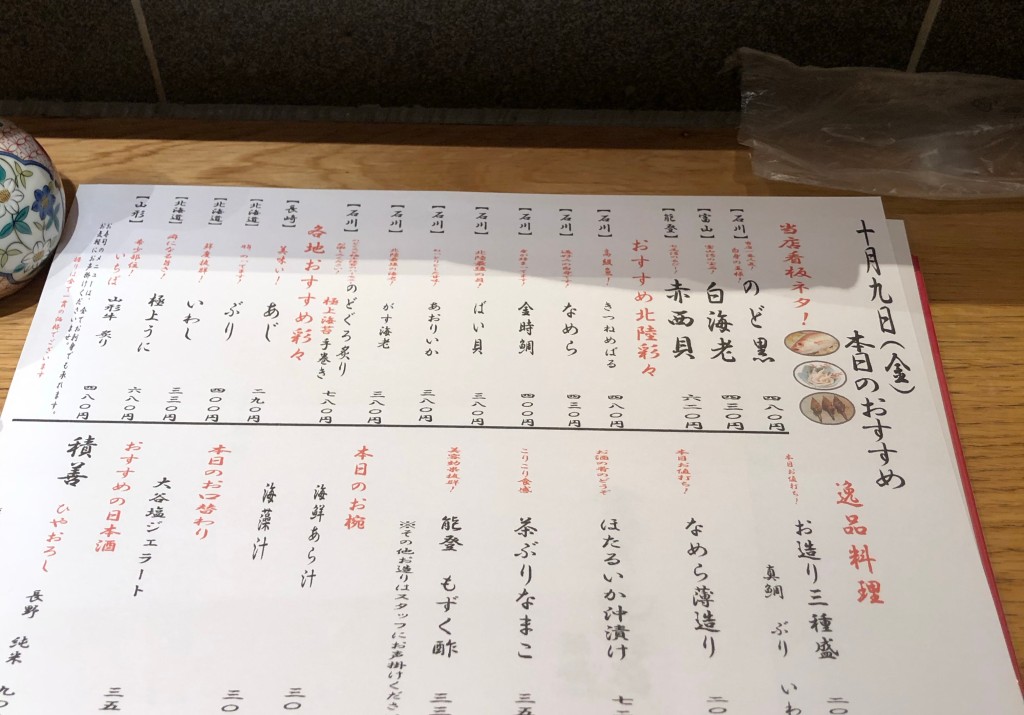 十月九日(金)
本日のおすすめ
当店看板ネタ!
【石川】
のど黒
四八〇円
【富山】
白海老
四三〇円
【能登】
赤西貝
六二〇円
おすすめ北陸彩々
【石川】
きつねめばる
四八〇円
【石川】
なめら
四三〇円
【石川】
金時鯛
四八〇円
【石川】
ばい貝
三八〇円
【石川】
あおりいか
三八〇円
【石川】
がす海老
三八〇円
【石川】
のどぐろ炙り
極上海苔 手巻き
七八〇円
各地おすすめ彩々
【長崎】
美味い!
あじ
【北海道】
ぶり
二九〇円
【北海道】
鮮度抜群!
いわし
四〇〇円
【北海道】
極上うに
三三〇円
【山形】
希少部位!
いちぼ
山形牛 炙り
六八〇円
四八〇円
逸品料理
本日お値打ち!
お造り三種盛
真鯛 ぶり いわ
二〇
本日お値打ち!
なめら薄造り
二〇
お酒の肴のどうぞ
ほたるいか沖漬け
七二
こりこり食感
茶ぶりなまこ
三五
美容効果抜群!
能登 もずく酢
三三
※その他お造りはスタッフにお声掛けくださ
本日のお椀
海鮮あら汁
海藻汁
三〇
本日のお口替わり
大谷塩ジェラート
三〇
おすすめの日本酒
積善 ひやおろし
長野 純米
三五
九〇